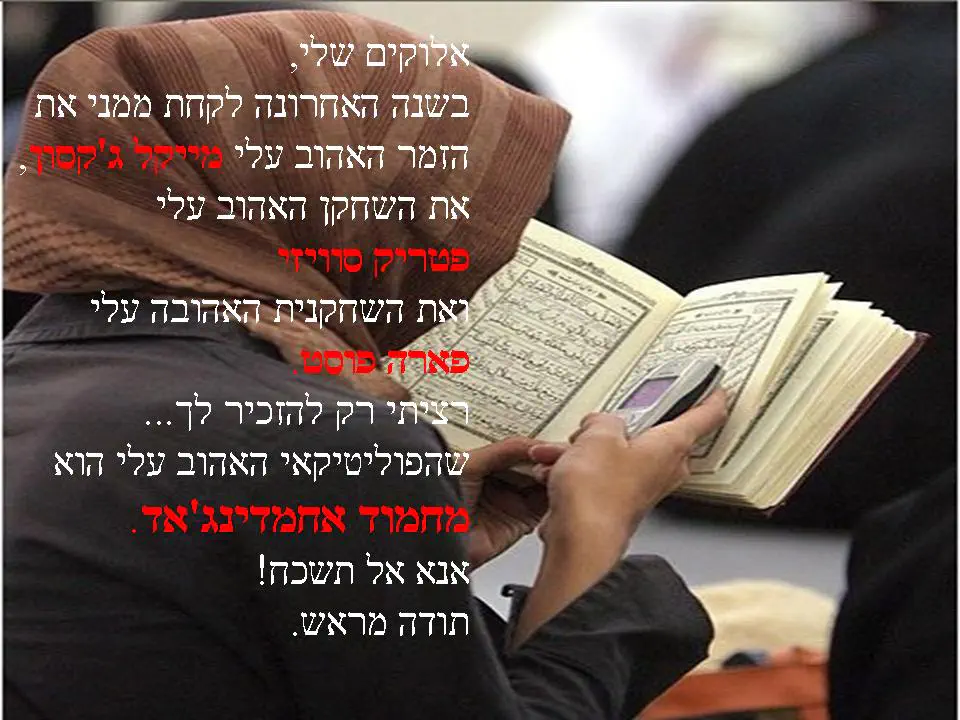 אלוקים שלי,
בשנה האחרונה לקחת ממני את
הזמר האהוב עלי מייקל ג'קסון,
את השחקן האהוב עלי
פטריק סוויזי
ואת השחקנית האהובה עלי
פארה פוסט.
רציתי רק להזכיר לך...
שהפוליטיקאי האהוב עלי הוא
מחמוד אחמדינג'אד.
אנא אל תשכח!
תודה מראש.